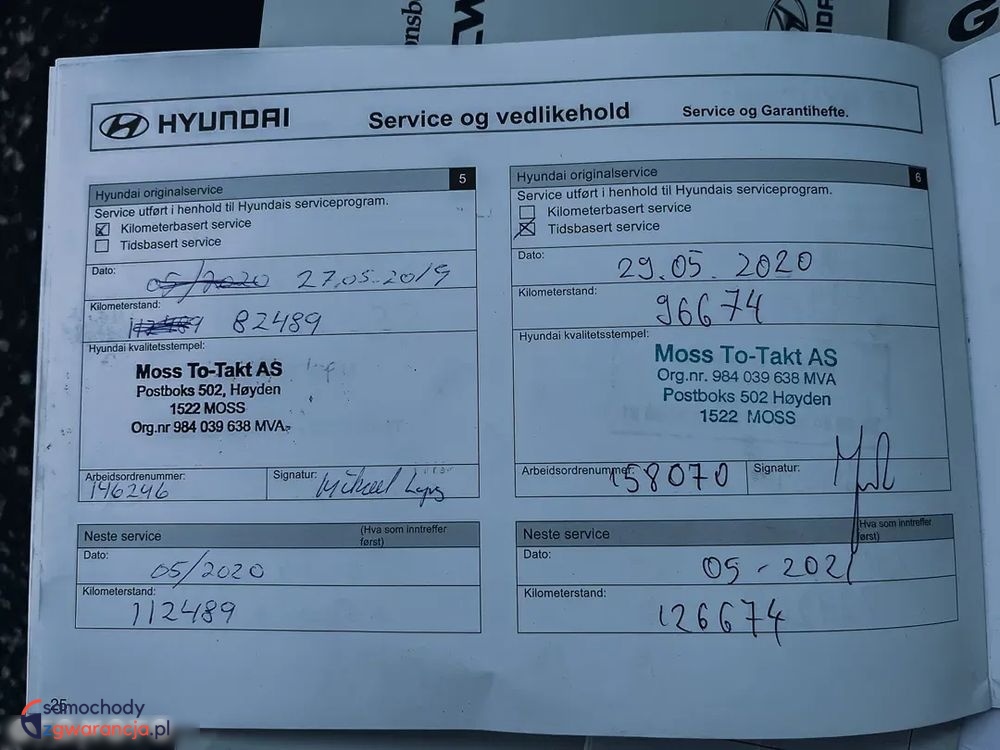 onsb
HYUNDAI
Service og vedlikehold
Service og Garantihefte.
Hyundai originalservice
5
Service utført i henhold til Hyundais serviceprogram.
Kilometerbasert service
Tidsbasert service
Dato:
05/2020 27.05.2019
Kilometerstand:
112489 82489
Hyundai kvalitetsstempel:
Moss To-Takt AS
Postboks 502, Høyden
1522 MOSS
Org.nr 984 039 638 MVA.
Arbeidsordrenummer:
146246
Signatur:
Michael
Neste service
(Hva som inntreffer
først)
Dato:
05/2020
Kilometerstand:
112489
Hyundai originalservice
6
Service utført i henhold til Hyundais serviceprogram.
Kilometerbasert service
Tidsbasert service
Dato:
29.05.2020
Kilometerstand:
96674
Hyundai kvalitetsstempel:
Moss To-Takt AS
Org.nr. 984 039 638 MVA
Postboks 502 Høyden
1522 MOSS
Arbeidsordrenummer:
158070
Signatur:
Neste service
(Hva som inntreffer
først)
Dato:
05-2021
Kilometerstand:
126674
25
samochody
zgwarancja.pl